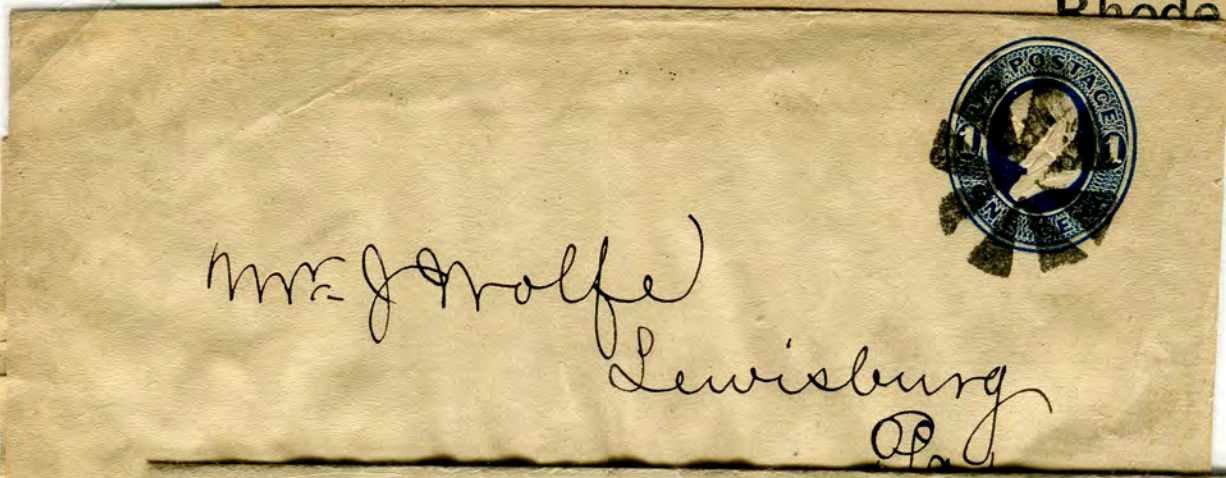 Rhode
U.S. POSTAGE
1 1
ONE CENT
Mr. J Wolfe
Lewisburg
Pa